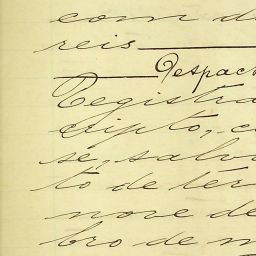 com d
reis
Despac
Registra
cripto, c
se, salv
to de tér
nove de
bro de m